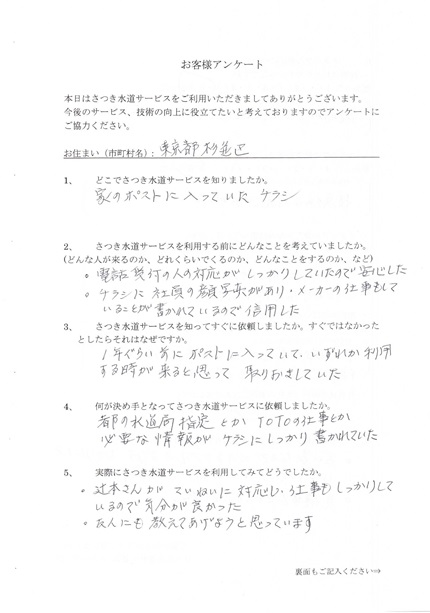 お客様アンケート
本日はさつき水道サービスをご利用いただきましてありがとうございます。
今後のサービス、技術の向上に役立てたいと考えておりますのでアンケートに
ご協力ください。
お住まい（市町村名）：東京都杉並区
1、 どこでさつき水道サービスを知りましたか。
家のポストに入っていた チラシ
2、 さつき水道サービスを利用する前にどんなことを考えていましたか。
(どんな人が来るのか、どれくらいでくるのか、どんなことをするのか、など)
。電話受付の人の対応がしっかりしていたので安心した
。チラシに社員の顔写真があり・メーカーの仕事もして
いることが書かれているので信用した
3、 さつき水道サービスを知ってすぐに依頼しましたか。すぐではなかった
としたらそれはなぜですか。
1年ぐらい前にポストに入っていて、いずれか利用
する時が来ると思って 取りおきしていた
4、 何が決め手となってさつき水道サービスに依頼しましたか。
都の水道局指定とか TOTOの仕事とか
必要な情報が チラシにしっかり書かれていた
5、 実際にさつき水道サービスを利用してみてどうでしたか。
。辻本さんが ていねいに対応し、仕事もしっかりして
いるので気分が良かった
。友人にも教えてあげようと思っています
裏面もご記入ください⇒